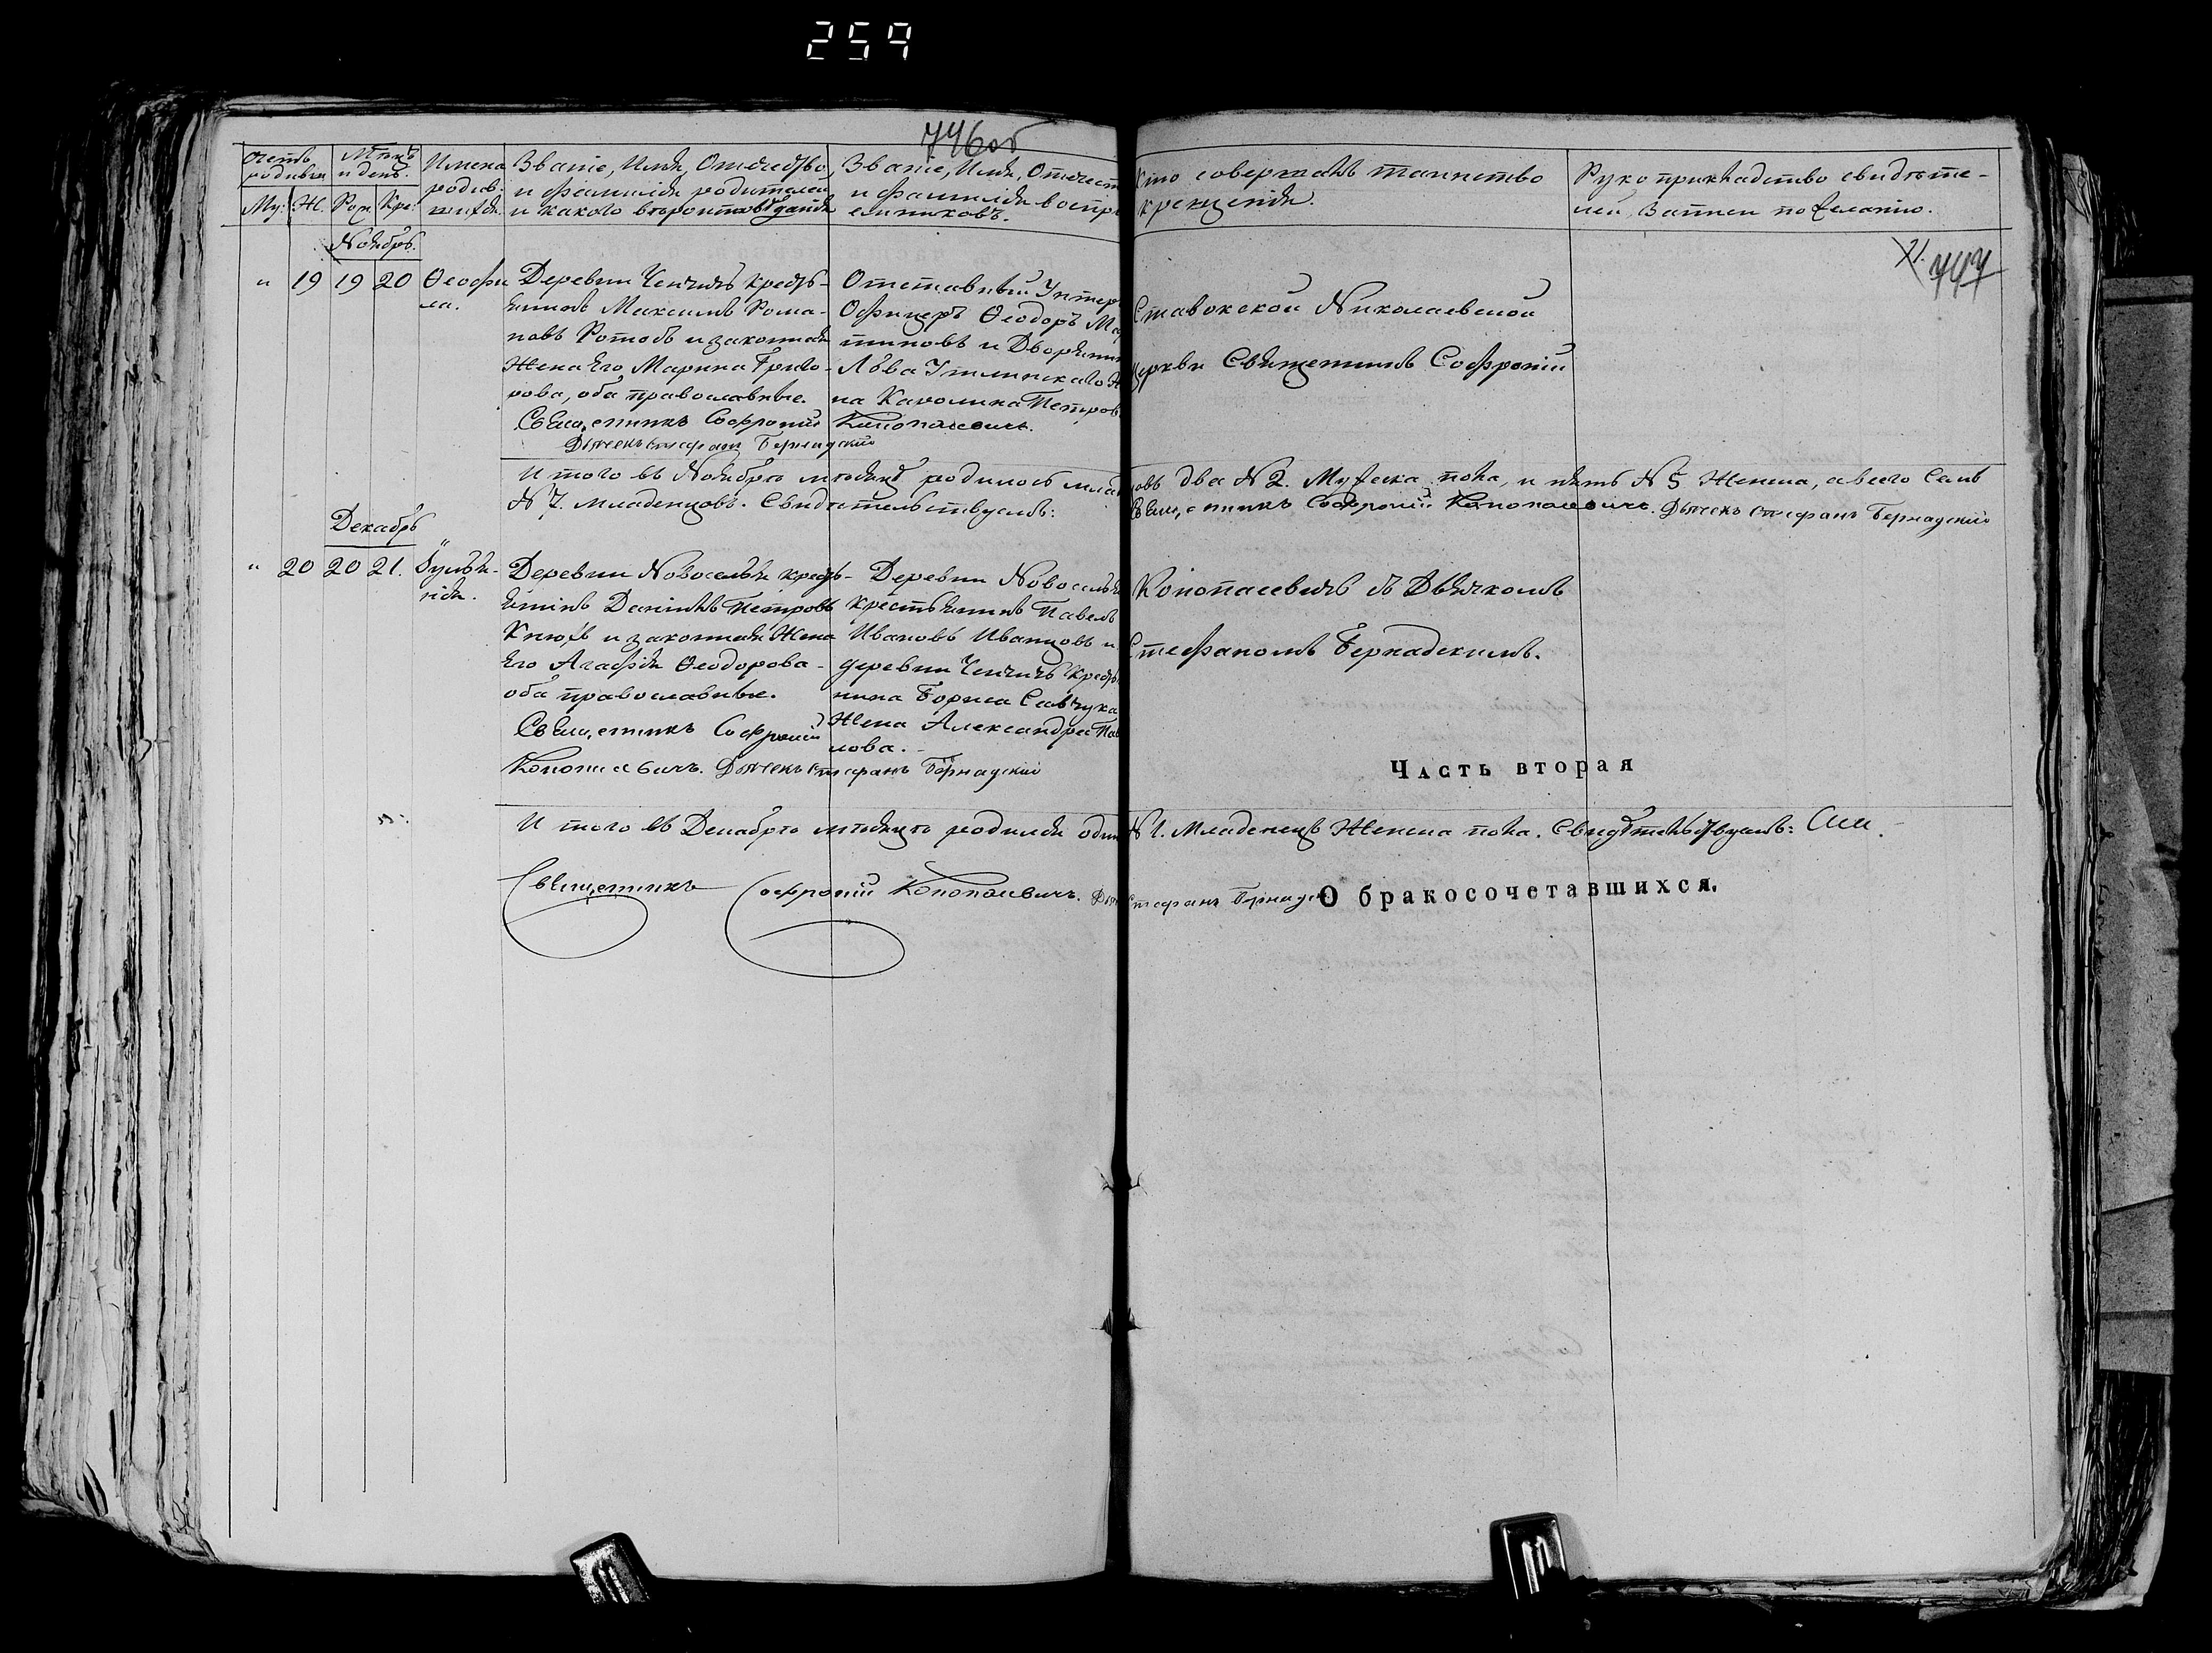 259
746 об
Счетъ родивш:
Мѣсяцъ и день.
Му: Ж. Рож Кре:
Имена родив- шихся
Званіе, Имя, Отчество, и Фамилія родителей, и какого вѣроисповѣданія
Званіе, Имя, Отчест и Фамилія воспрі емниковъ.
Кто совершалъ таинство крещенія.
Рукоприкладство свидѣте- лей записи по желанію.
747
Ноябрь.
" 19 19 20
Ѳеофи ла.
Деревни Ченчичъ кресть-
янинъ Максимъ Рома-
новъ и законная
Жена Его Марина Григо-
рова, оба православные.
Священникъ Софроній Конопасевичъ.
Дьячекъ Стефанъ Бернадскій
Отставный Унтер
Офицеръ Ѳеодоръ Ма
тиновъ и Дворянин
Льва Ж
на Каролина Петров
Ставокской Николаевской
Церкви Священникъ Софроній
И того въ Ноябрѣ мѣсяцѣ родилось младе
цовъ два N 2. Мужеска пола, и пять N 5 Женска, а всего Семь
N 7. младенцовъ. Свидѣтельствуемъ:
Священникъ Софроній Конопасевичъ. Дьячекъ Стефанъ Бернадскій
Декабрь
" 20 20 21.
Іульян- нія.
Деревни Новоселья кресть-
янинъ Даніилъ Петровъ
и законная Жена
Его Агафія Ѳеодорова
оба православные.
Священникъ Софроній
Конопасевичъ. Дьячекъ Стефанъ Бернадскій
Деревни Новоселья
крестьянинъ Павелъ
Ивановъ Иванцовъ и
деревни Ченчичъ кресть
нина Бориса Савчука
Жена Александра Пав
лова.
Конопасевичъ съ Дьячкомъ
Стефаномъ Бернадскимъ.
Часть вторая
И того въ Декабрѣ мѣсяцѣ родился один
N 1. Младенецъ Женска пола. Свидѣтельствуемъ:
Священникъ Софроній Конопасевичъ. Дья
Стефанъ Бернадск
О бракосочетавшихся.